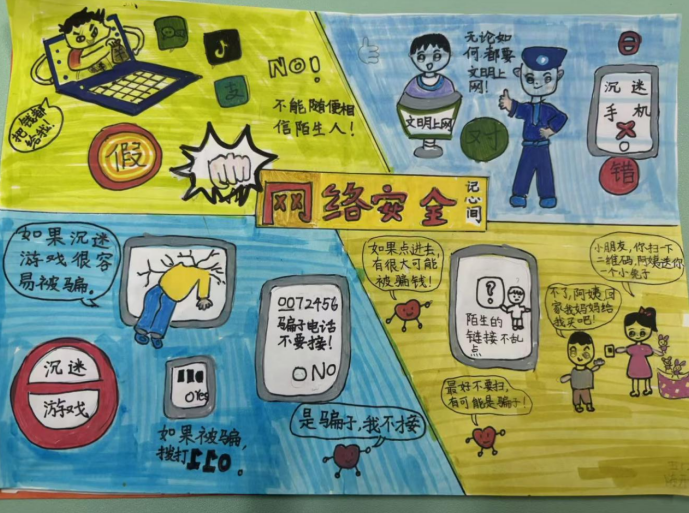 把钱都
给我!
支
NO!
不能随便相
信陌生人!
假
无论如
何都要
文明上
网!
文明上网
对
沉迷
手机
错
网络安全
记心间
如果沉迷
游戏很容
易被骗。
沉迷
游戏
0072456
骗子电话
不要接!
NO
110
Yes
如果被骗,
拨打110.
是骗子,我不接
如果点进去,
有很大可能
被骗钱!
?
陌生的
链接不乱
点
最好不要扫,
有可能是骗子!
小朋友,你扫一下
二维码,阿姨送你
一个小兔子
不了,阿姨回
家我妈妈给
我买吧!